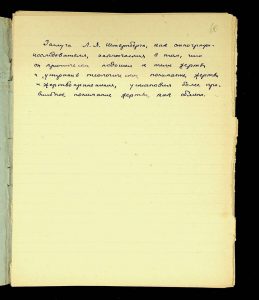 Заслуга Л. Я. Штернберга, как этнографа-
исследователя, заключается в том, что
он критически подошел к теме жертвы
и устранив теологическое понимание жертвы
и жертвоприношения, установил более пра-
вильное понимание жертвы, как обмена.